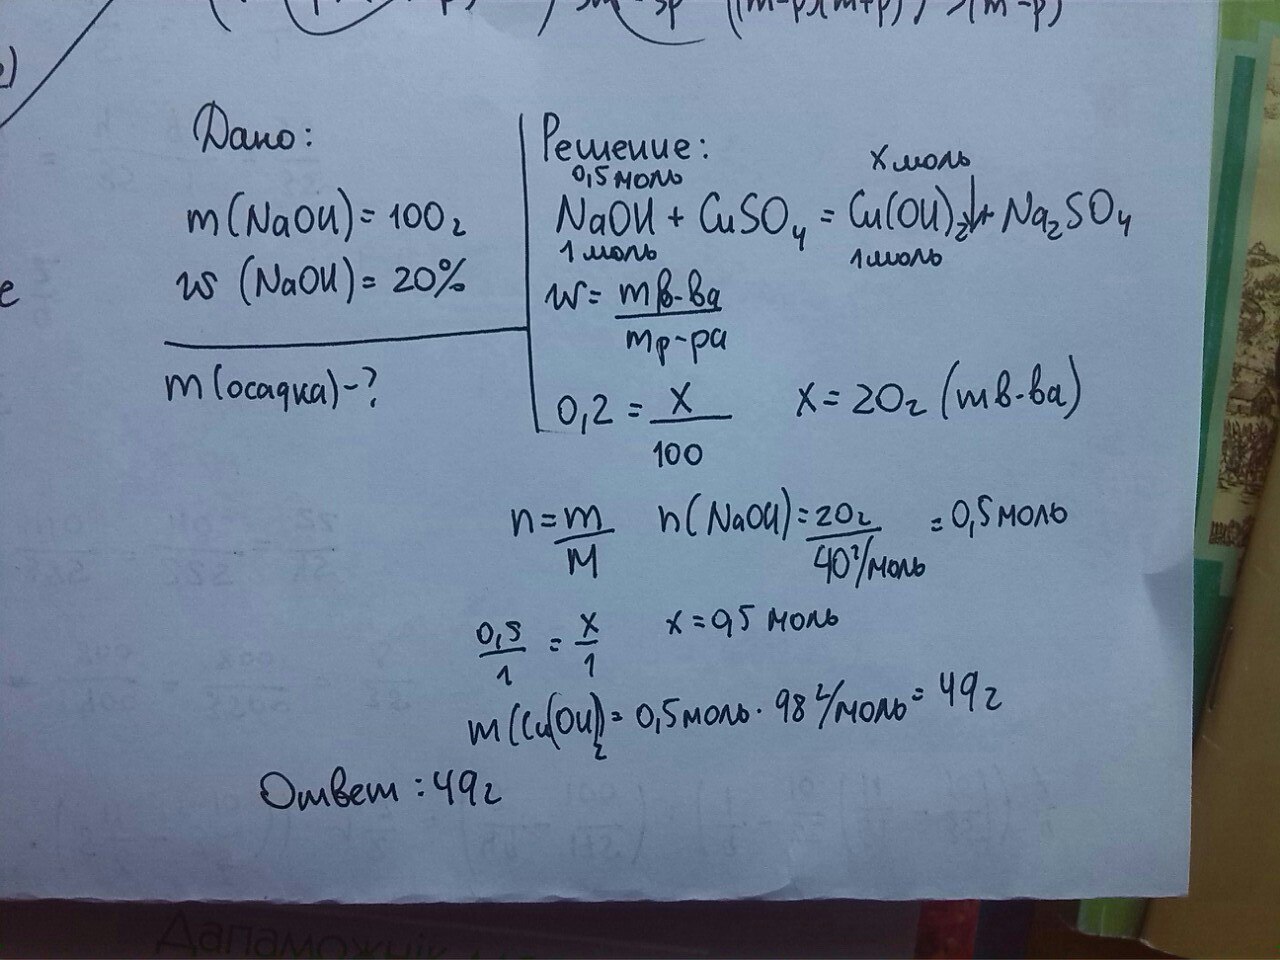 Дано:
m(NaOH)=100г
w (NaOH)=20%
m(осадка)-?
Решение:
0,5 моль
x моль
NaOH + CuSO4 = Cu(OH)2↓+ Na2SO4
1 моль
1 моль
w= mв-ва
mр-ра
0,2 = x
100
x=20г (mв-ва)
n=m
M
n(NaOH)=20г =0,5 моль
40г/моль
0,5 = x
1 1
x=0,5 моль
m(Cu(OH)2= 0,5моль·98г/моль=49г
Ответ:49г
Дапаможнік